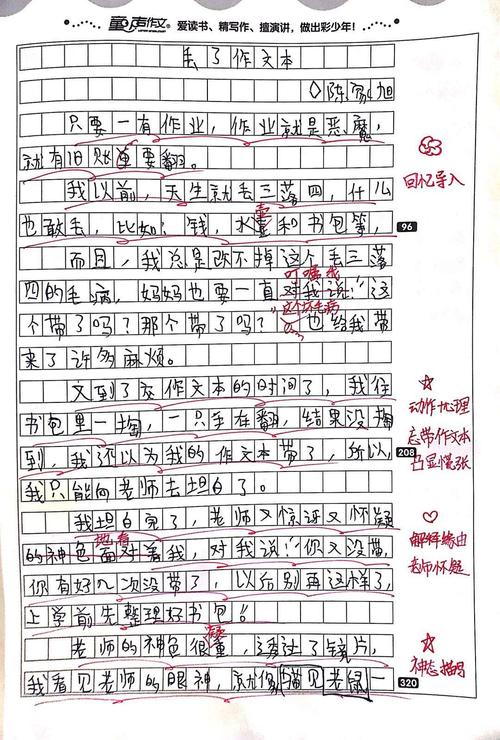 童声作文 爱读书、精写作、擅演讲，做出彩少年！
丢了作文本
陈家旭
只要一有作业，作业就是恶魔，
就有旧账重要翻。
我以前，天生就丢三落四，什么
也敢丢，比如：钱，水壶和书包等，
壶
96
回忆导入
而且，我总是改不掉这个丢三落
叮嘱我
四的毛病，妈妈也要一直对我说："这
个带了吗？那个带了吗？"也给我带
这个坏毛病
来了许多麻烦。
又到了交作文本的时间了，我往
书包里一掏，一只手在翻，结果没掏
到，我还以为我的作文本带了，所以，
208
我只能向老师去坦白了。
动作 心理
忘带作文本
凸显慌张
我坦白完了，老师又惊讶又怀疑
地看
的神色面对着我，对我说："你又没带，
你有好几次没带了，以后别再这样了，
上学前先整理好书包！"
解释缘由
老师怀疑
老师的神色很重，透过了镜片，
凝
我看见老师的眼神，就像猫见老鼠一
320
神态描写